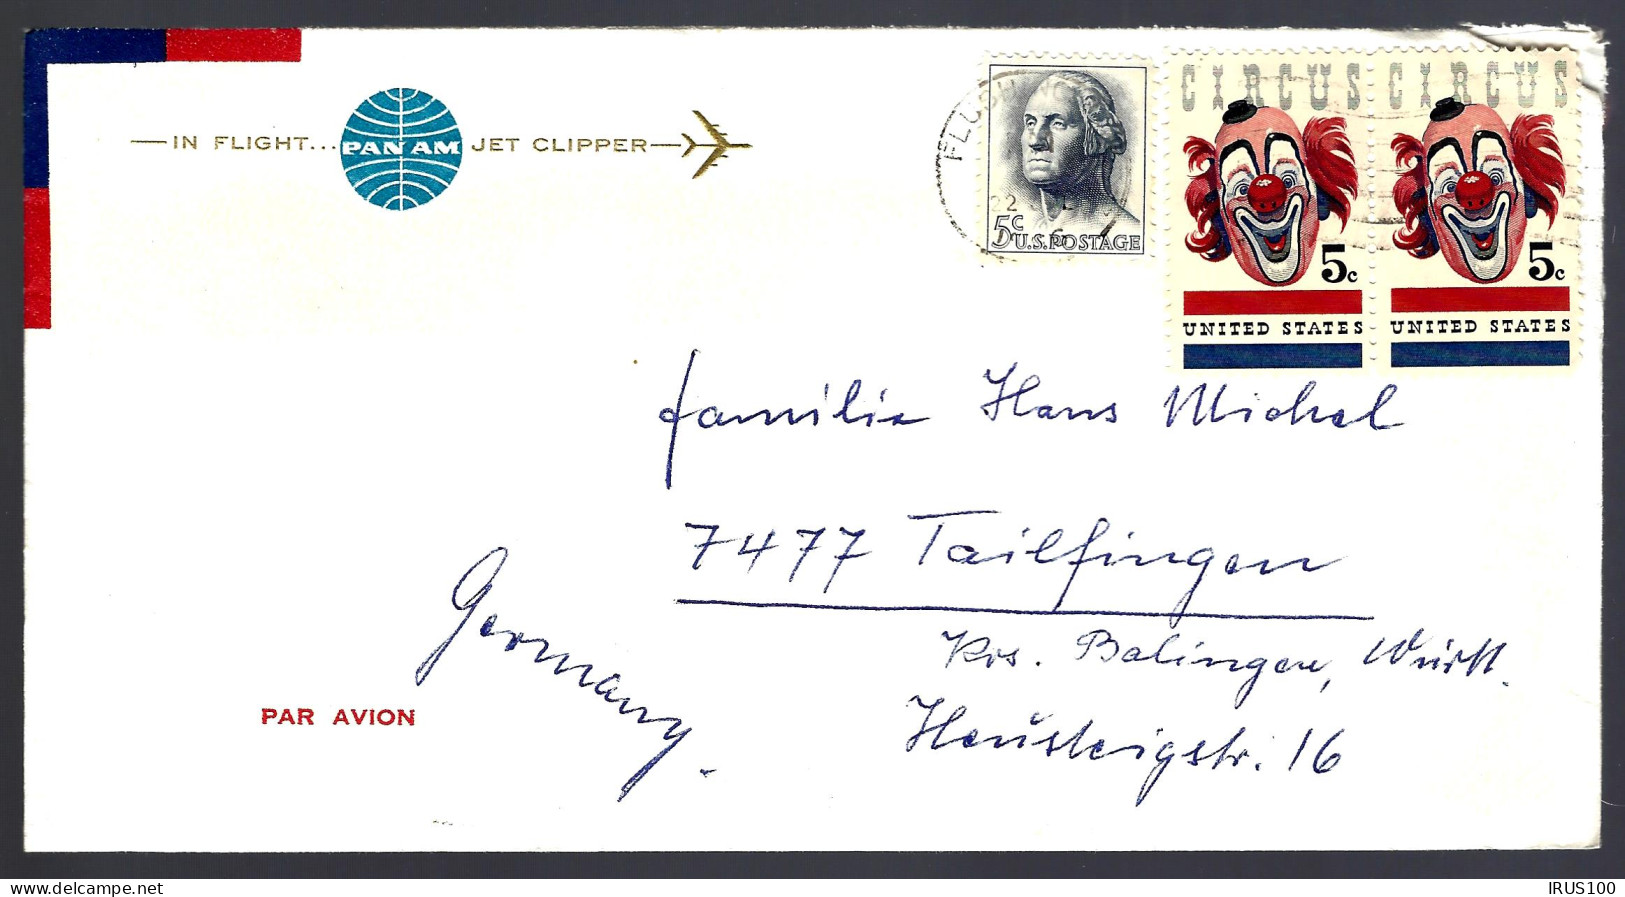 IN FLIGHT... PAN AM JET CLIPPER
FLUSH
22
5c U.S. POSTAGE
CIRCUS CIRCUS
5c 5c
UNITED STATES UNITED STATES
Familie Hans Michel
7477 Tailfingen
Krs. Balingen, Württ.
Heusteigstr. 16
Germany.
PAR AVION
www.delcampe.net
IRUS100